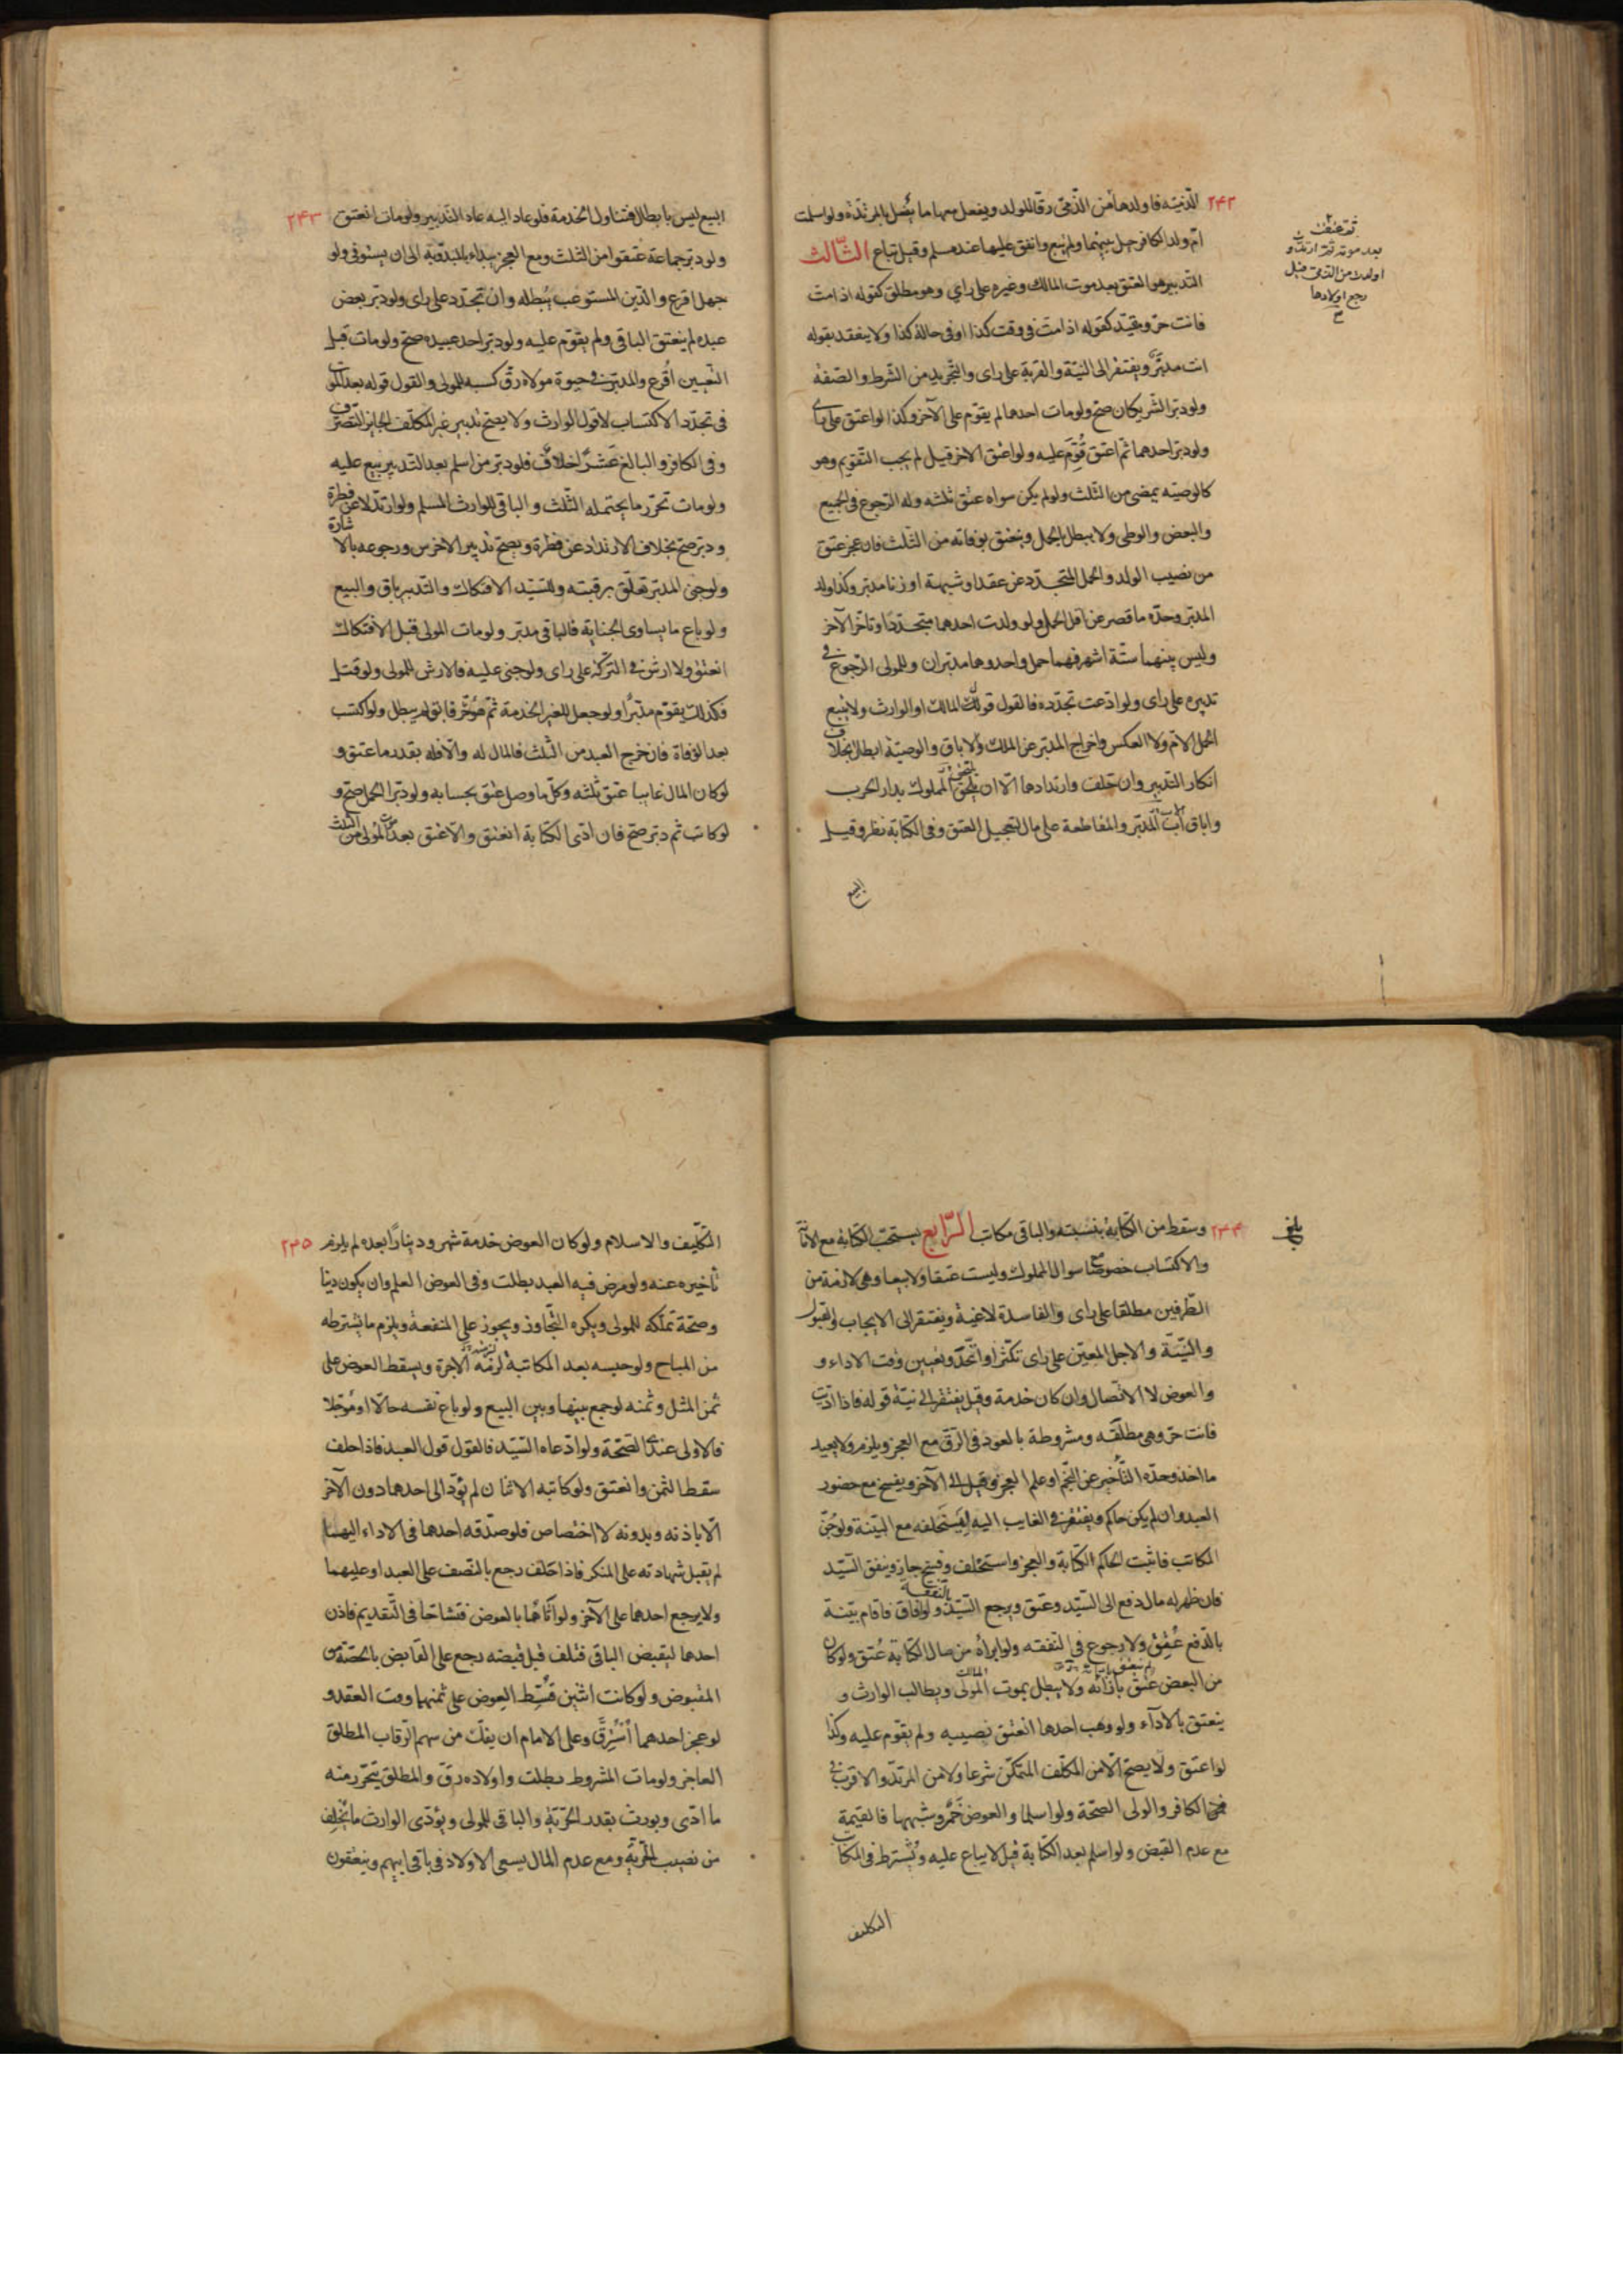 ٢٤٢ الذنیه فاولدها من الذمی رقا للولد ویفعل بها ما یفعل بالمرتدة ولو اسلمت
ام ولد الکافر حیل بینهما ولم تبع وانفق علیها عند مسلم وقیل تباع الثالث
التدبیر هو العتق بعد موت المالک وغیره علی رای وهو مطلق کقوله اذا مت
فانت حر ومقید کقوله اذا مت فی وقت کذا او فی حالة کذا ولا ینعقد بقوله
انت مدبر ویفتقر الی النیة والقربة علی رای والتجرید من الشرط والصفة
ولو دبر الشریکان صح ولو مات احدهما لم یقوم علی الآخر وکذا لو اعتق علی رای
ولو دبر احدهما ثم اعتق قوم علیه ولو اعتق الاخر قیل لم یجب التقویم وهو
کالوصیة یمضی من الثلث ولو لم یکن سواه عتق ثلثه وله الرجوع فی الجمیع
والبعض والوطی ولا یبطل بالحمل وتنعتق بوفاته من الثلث فان عجز عتق
من نصیب الولد والحمل المتجدد عن عقد او شبهة او زنا مدبر وکذا ولد
المدبر وحده ما قصر عن اقل الحمل ولو ولدت احدهما متجددا وتاخر الآخر
ولیس بینهما ستة اشهر فهما حمل واحد وهما مدبران وللمولی الرجوع فی
تدبیره علی رای ولو ادعت تجدده فالقول قول المالک او الوارث ولا یتبع
الحمل الام ولا العکس واخراج المدبر عن الملک والاباق والوصیة ابطال بخلاف
انکار التدبیر وان حلف وارتدادها الا ان یلتحق المملوک بدار الحرب
واباق اب المدبر والمقاطعة علی مال لتعجیل العتق وفی الکتابة نظر وقیل
البیع
بعد موته ثم ارتدت و
اولدت من الذمی قیل
رجع اولادها
٢٤٣ البیع لیس بابطال فتناول الخدمة فلو عاد الیه عاد التدبیر ولو مات انعتق
ولو دبر جماعة عتقوا من الثلث ومع العجز یبداء بالمبدو به الی ان یستوفی ولو
جهل اقرع والدین المستوعب یبطله وان تجدد علی رای ولو دبر بعض
عبده لم ینعتق الباقی ولم یقوم علیه ولو دبر احد عبیده صح ولو مات قبل
التعیین اقرع والمدبر فی حیوة مولاه رق کسبه للمولی والقول قوله بعد الموت
فی تجدد الاکتساب لا قول الوارث ولا یصح تدبیر غیر المکلف الجایز التصرف
وفی الکافر والبالغ عشرا خلاف فلو دبر من اسلم بعد التدبیر بیع علیه
ولو مات تحرر ما یحتمله الثلث والباقی للوارث المسلم ولو ارتد لا عن فطرة
ودبر صح بخلاف الارتداد عن فطرة ویصح تدبیر الاخرس ورجوعه بالاشارة
ولو جنی المدبر تعلق برقبته وللسید الافتکاک والتدبیر باق والبیع
ولو باع ما یساوی الجنایة فالباقی مدبر ولو مات المولی قبل الافتکاک
انعتق ولا ارش فی الترکة علی رای ولو جنی علیه فالارش للمولی ولو قتل
فکذلک یقوم مدبرا ولو جعل للغیر الخدمة ثم هو حر فابق لم یبطل ولو اکتسب
بعد الوفاة فان خرج العبد من الثلث فالمال له والا فله بقدر ما عتق و
لو کان المال غایبا عتق ثلثه وکل ما وصل عتق بحسابه ولو دبر الحمل صح و
لو کاتب ثم دبر صح فان ادی الکتابة انعتق والا عتق بعد موت المولی من الثلث
٢٤٤ وسقط من الکتابة بنسبته والباقی مکاتب الرابع یستحب الکتابة مع الامانة
والاکتساب خصوصا مع سوال المملوک ولیست عتقا ولا بیعا وهی لازمة من
الطرفین مطلقا علی رای والفاسدة لاغیة ویفتقر الی الایجاب والقبول
والنیة والاجل المعین علی رای تکثر او اتحد وتعیین وقت الاداء و
والعوض لا الاتصال وان کان خدمة وقیل یفتقر الی نیة قوله فاذا ادیت
فانت حر وهی مطلقه ومشروطة بالعود فی الرق مع العجز ویلزم ولا یعید
ما اخذ وحده التأخیر عن النجم او علم العجز وقیل الی الآخر ویفسخ مع حضور
العبد وان لم یکن حاکم ویفتقر فی الغایب الیه لیستحلفه مع البینة ولو جن
المکاتب فاثبت الحاکم الکتابة والعجز واستحلف وفسخ جاز وینفق السید
فان ظهر له مال دفع الی السید وعتق ویرجع السید بالنفقة ولو افاق فاقام بینة
بالدفع عتق ولا رجوع فی النفقه ولو ابراه من مال الکتابة عتق ولو کان
من البعض عتق بازائه ولا یبطل بموت المولی ویطالب الوارث و
ینعتق بالادآء ولو وهب احدها انعتق نصیبه ولم یقوم علیه وکذا
لو اعتق ولا یصح الا من المکلف المتمکن شرعا ولا من المرتد والاقرب فی
الکافر والولی الصحة ولو اسلما والعوض خمر وشبهها فالقیمة
مع عدم القبض ولو اسلم بعد الکتابة قیل لا یباع علیه ویشترط فی المکاتب
التکلیف
بلغ
٢٤٥ التکلیف والاسلام ولو کان العوض خدمة شهر ودینارا بعده لم یلزم
تأخیره عنه ولو مرض فیه العبد بطلت وفی العوض العلم وان یکون دینا
وصحة تملکه للمولی ویکره التجاوز ویجوز علی المنفعة ویلزم ما یشترطه
من المباح ولو حبسه بعد المکاتبة لزمه الاجرة ویسقط العوض علی
ثمن المثل وثمنه لو جمع بینها وبین البیع ولو باع نفسه حالا او موجلا
فالاولی عندی الصحة ولو ادعاه السید فالقول قول العبد فاذا حلف
سقط الثمن وانعتق ولو کاتبه الاثنان لم یود الی احدهما دون الآخر
الا باذنه وبدونه لا اختصاص فلو صدقه احدهما فی الاداء الیهما
لم یقبل شهادته علی المنکر فاذا حلف رجع بالنصف علی العبد او علیهما
ولا یرجع احدهما علی الآخر ولو اتاهما بالعوض فتشاحا فی التقدیم فاذن
احدهما لیقبض الباقی فتلف قبل قبضه رجع علی القابض بالحصة من
المقبوض ولو کانت اثنین قسط العوض علی ثمنهما وقت العقد و
لو عجز احدهما استرق وعلی الامام ان یفک من سهم الرقاب المطلق
العاجز ولو مات المشروط بطلت واولاده رق والمطلق یتحرر منه
ما ادی ویورث بقدر الحریة والباقی للمولی ویؤدی الوارث ما تخلف
من نصیب الحریة ومع عدم المال یسعی الاولاد فی باقی ابیهم وینعتقون